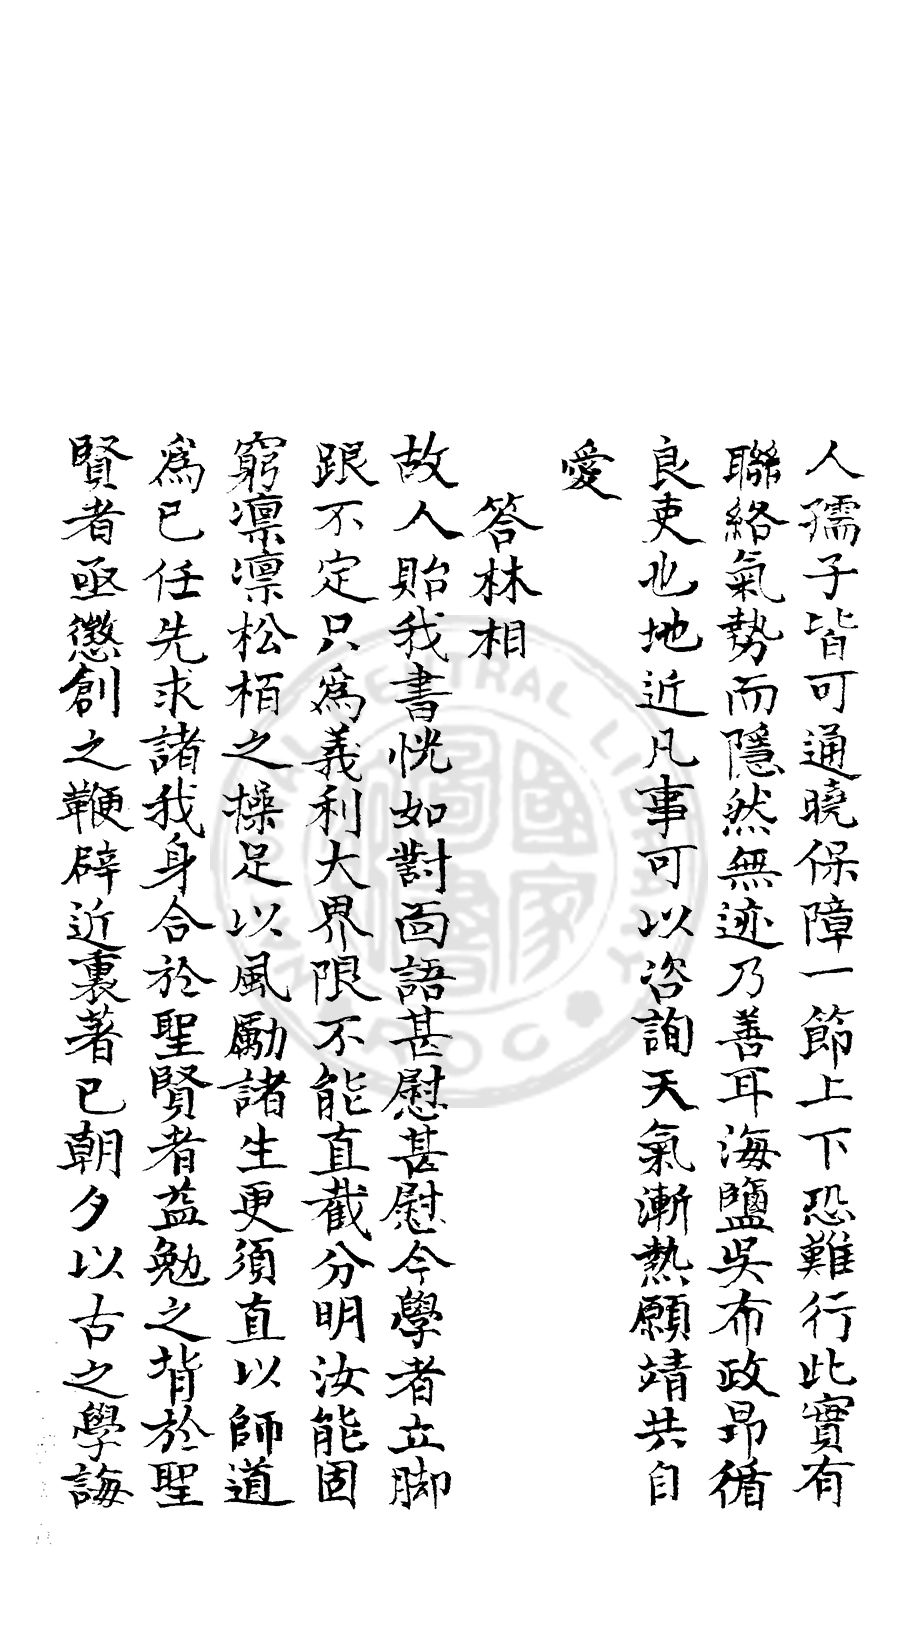 人孺子皆可通曉保障一節上下恐難行此實有
聯絡氣勢而隱然無迹乃善耳海鹽吳布政昂循
良吏也地近凡事可以咨詢天氣漸熱願靖共自
愛
答林相
故人貽我書恍如對面語甚慰甚慰今學者立脚
跟不定只爲義利大界限不能直截分明汝能固
窮凛凛松栢之操足以風勵諸生更須直以師道
爲已任先求諸我身合於聖賢者益勉之背於聖
賢者亟懲創之鞭辟近裏著已朝夕以古之學誨
CENTRAL LIBRARY